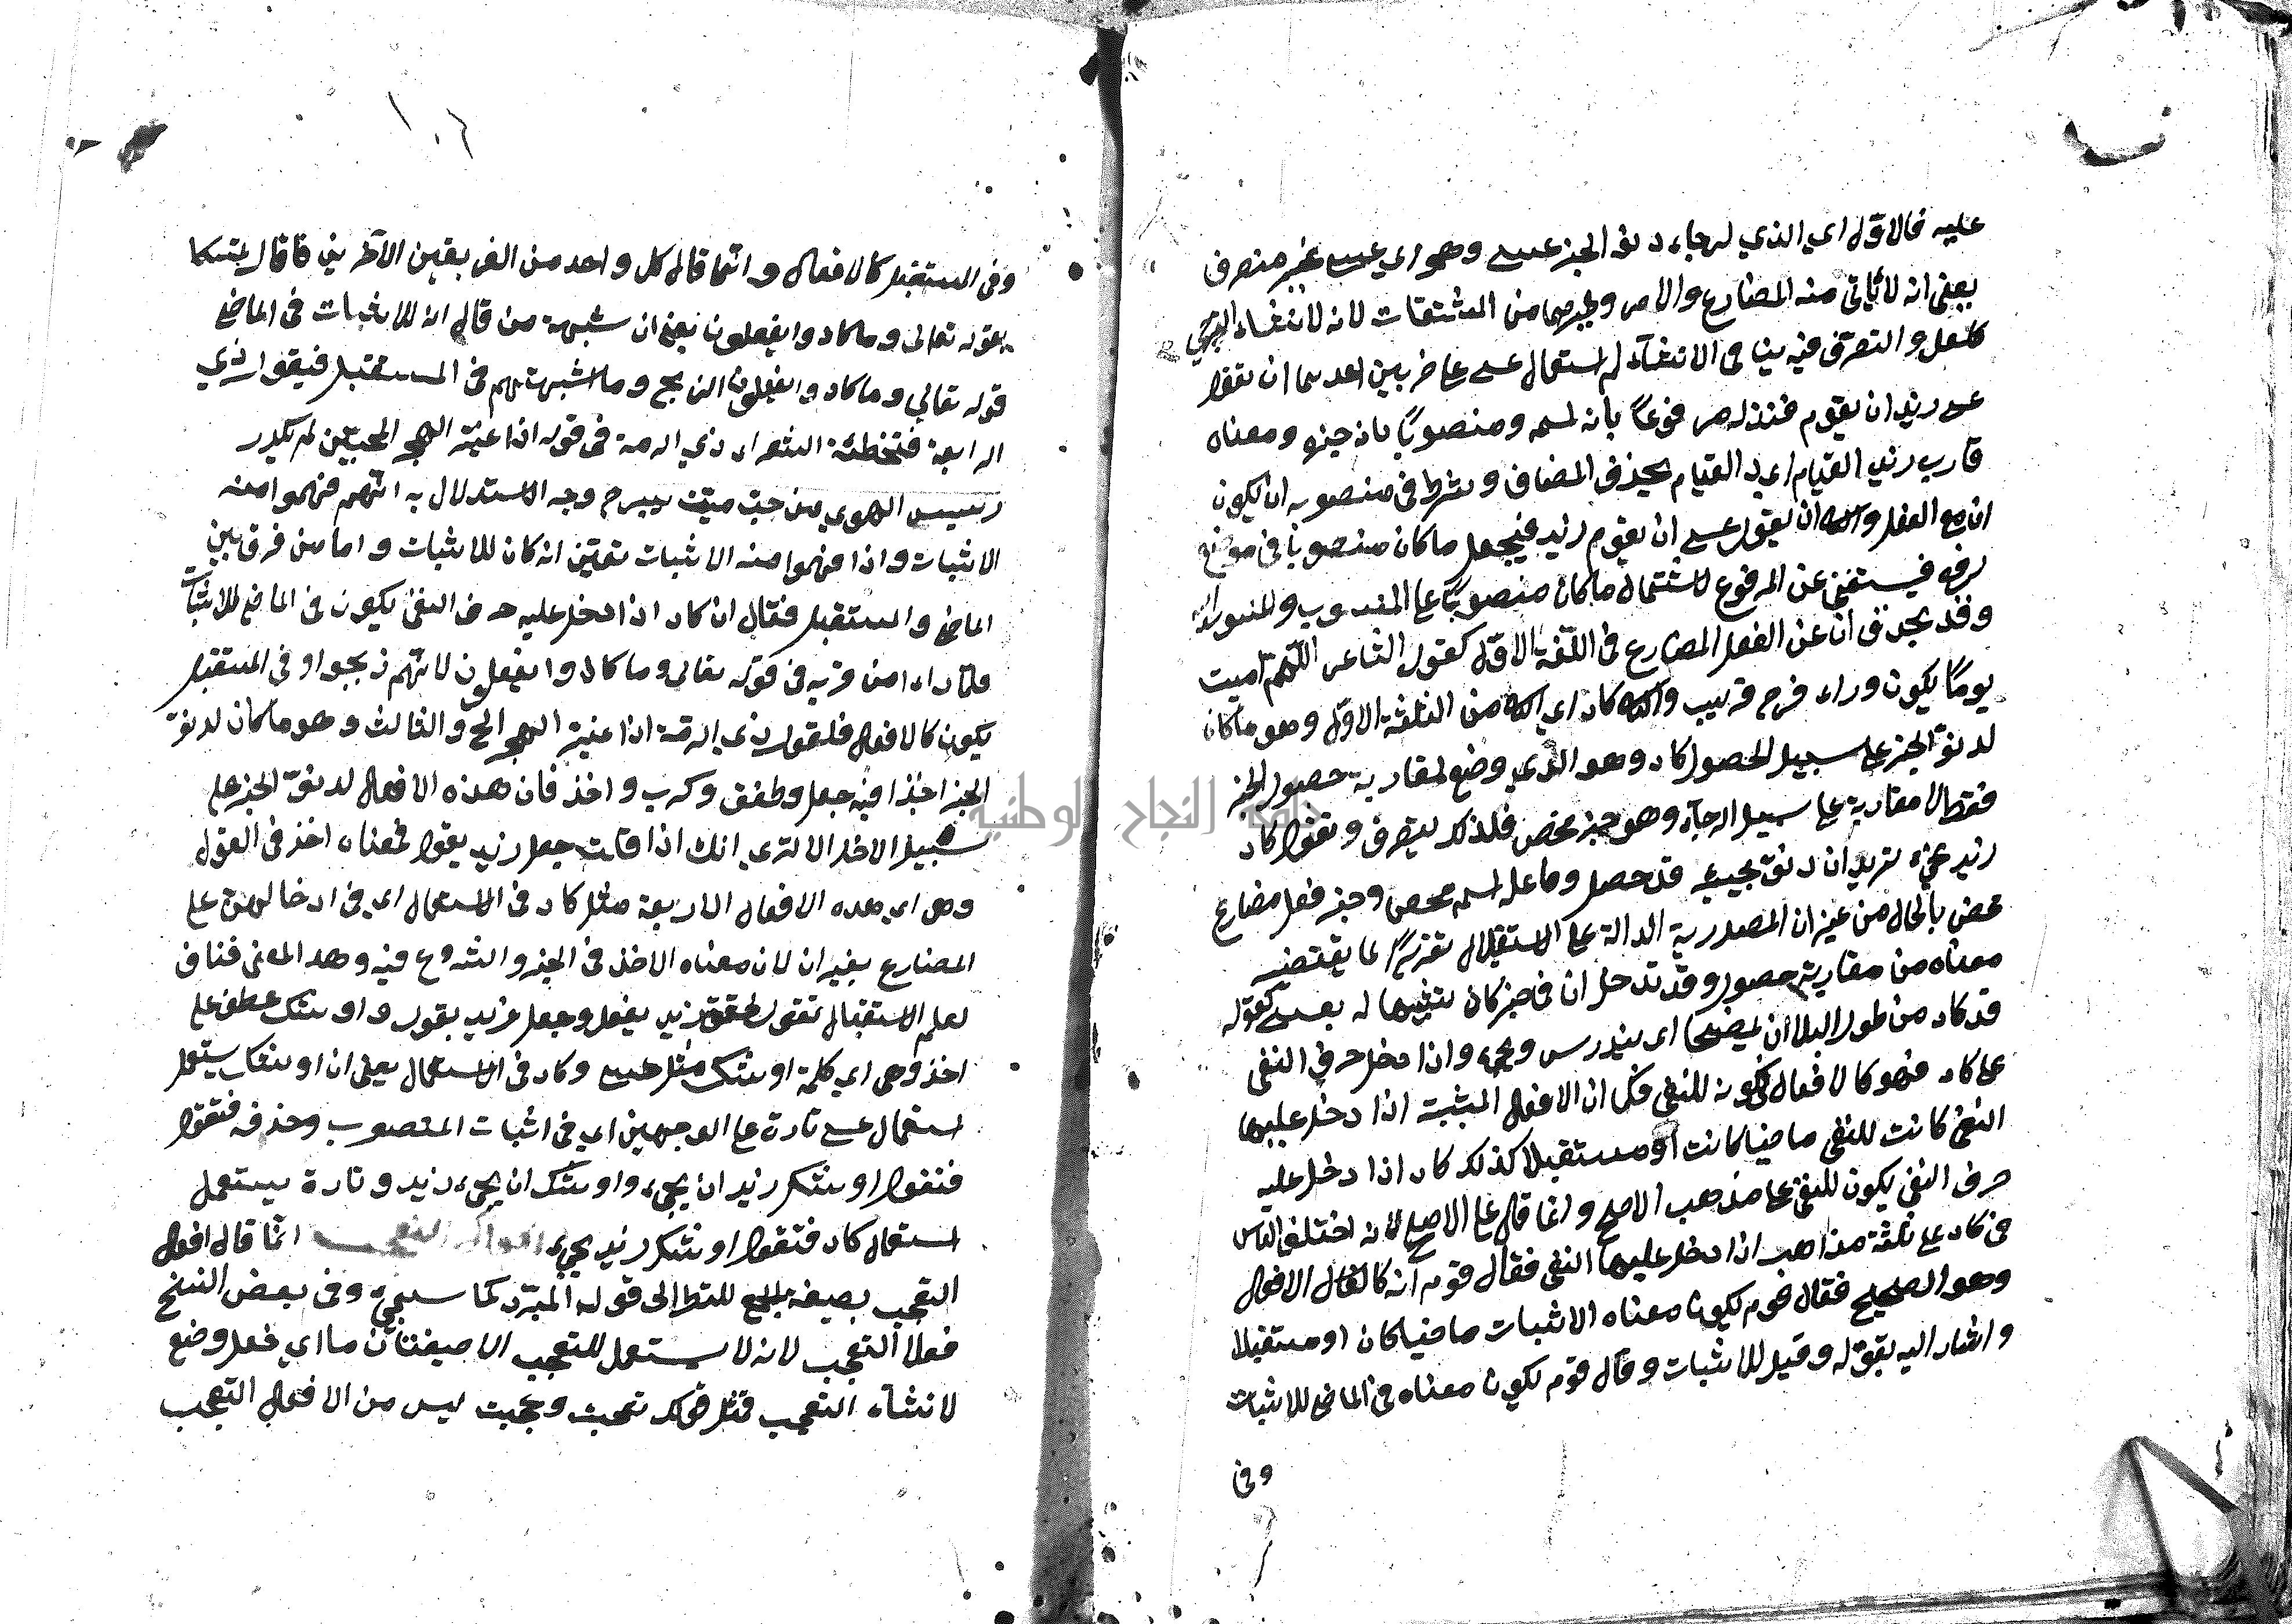 عليه فالاوّل اي الذي لرجاء دنوّ الخبر عسى وهو اي عسى غير منصرف
يعنى انه لا يأتي منه المضارع والامر وغيرهما من المشتقات لانه لانشاء الترجي
كلعل والتصرف فيه ينافى الانشآء ثم استعمال عسى على ضربين احدهما ان تقول
عسى زيد ان يقوم فزيد مرفوعًا بأنه اسمه ومنصوبًا بانه خبره ومعناه
قارب زيد القيام اي ذا القيام بحذف المضاف وشرط فى منصوبه ان يكون
ان مع الفعل والثاني ان يقول عسى ان يقوم زيد فيجعل ما كان منصوبا فى موضع
رفع فيستغنى عن المرفوع لاشتمال ما كان منصوبًا على المنسوب والمنسوب اليه
وقد يحذف ان عن الفعل المضارع فى اللّغة الاوّل كقول الشاعر اللّهم امسيت
يومًا يكون وراءه فرج قريب والثاني كاد اي الثاني من الثلثة الاوّل وهو ما كان
لدنوّ الخبر على سبيل الحصول كاد وهو الذي وضع لمقاربة حصول الخبر
فقط لا مقاربة على سبيل الرجآء وهو خبر محض فلذلك يتصرف وتقول كاد
زيد يجيء تريد ان دنوّ مجيئه قد حصل وفاعله اسم محض وخبره فعل مضارع
محض بالحال من غير ان المصدرية الدالة على الاستقبال تقريرًا لما يقتضيه
معناه من مقاربة حصوله وقد تدخل ان فى خبر كاد تشبيها له بعسى كقوله
قد كاد من طول البلا ان يمصحا اى يندرس ويمحي واذا دخل حرف النفى
على كاد فهو كالافعال فى كونه للنفى فكما ان الافعال المثبتة اذا دخل عليها
النفى كانت للنفى ماضيا كانت او مستقبلا كذلك كاد اذا دخل عليه
حرف النفى يكون للنفى على مذهب الاصح وانما قال على الاصح لانه اختلف الناس
فى كاد على ثلثة مذاهب اذا دخل عليها النفى فقال قوم انه كالافعال
وهو الصحيح فقال قوم يكون معناه الاثبات ماضيا كان او مستقبلا
واشار اليه بقوله وقيل للاثبات وقال قوم يكون معناه فى الماضى للاثبات
وفى
١٠٦
وفى المستقبل كالافعال وانما قال كل واحد من الفريقين الآخرين ما قال تمسكا
بقوله تعالى وما كادوا يفعلون يعنى ان شبهة من قال انه للاثبات فى الماضى
قوله تعالى وما كادوا يفعلون الذبح وما شبهتهم فى المستقبل فيقول ذي
الرابعة فتخطئة الشعراء ذي الرمة فى قوله اذا غيّر الهجر المحبّين لم يكد
رسيس الهوى من حبّ ميّة يبرح وجه الاستدلال به انّهم فهموا منه
الاثبات واذا فهموا منه الاثبات تعيّن انه كان للاثبات واما من فرق بين
الماضى والمستقبل فقال ان كاد اذا دخل عليه حرف النفى يكون فى الماضى للاثبات
يكون كالافعال فلقول ذى الرمة اذا غيّر الهجر الخ والثالث وهو ما كان لدنوّ
الخبر اخذا فيه جعل وطفق وكرب واخذ فان هذه الافعال لدنوّ الخبر على
سبيل الاخذ الا ترى انك اذا قلت جعل زيد يقول فمعناه اخذ فى القول
وهو اي هذه الافعال الاربعة مثل كاد فى الاستعمال اي فى ادخالهن على
المضارع بغير ان لان معناه الاخذ فى الخبر والشروع فيه وهذا المعنى مناف
لعلم الاستقبال تقول طفق زيد يفعل وجعل زيد يقول واوشك عطف على
اخذ وهى اي كلمة اوشك مثل عسى وكاد فى الاستعمال يعنى ان اوشك يستعمل
استعمال عسى تارة على الوجهين اي فى اثبات المنصوب وحذفه فتقول
فتقول اوشك زيد ان يجيء واوشك ان يجيء زيد وتارة يستعمل
استعمال كاد فتقول اوشك زيد يجيء انما قال افعال
التعجب بصيغة الجمع للنظر الى قوله المبّرد كما سيجيء وفى بعض النسخ
فعلا التعجب لانه لا يستعمل للتعجب الا صيغتان ما اي فعل وضع
لانشآء التعجب فمثل قولك تعجبت وعجبت ليس من الافعال التعجب
جامعة النجاح الوطنية